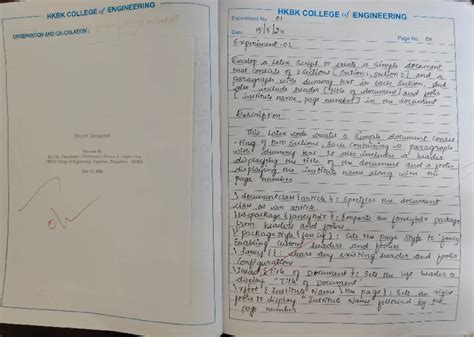 HKBK COLLEGE of ENGINEERING
OBSERVATION AND CALCULATION :
Simple Document
May 15, 2024
HKBK COLLEGE of ENGINEERING
Experiment No. 01
Date 15/5/24
Page No. 01
Experiment-01
Develop a Latex Script to create a simple document
that consists of 2 sections [Section1, Section2] and a
paragraph with dummy text in each section. And
also include header [title of document] and footer
[institute name, page number] in the document
Description:
This latex code creates a simple document consis
-ting of two sections, each containing a paragraph
with dummy text. It also includes a header
displaying the title of the document and a footer
displaying the institute name along with the
page number
\documentclass{article} : Specifies the document
class as an article
\usepackage{fancyhdr} : Imports the fancyhdr package
for headers and footers
\pagestyle{fancy} : Sets the page style to 'fancy'
Enabling custom headers and footers
\fancy{} : clears any existing header and footer
configurations
\lhead{Title of Document} : Sets the left header to
display "Title of Document"
\rfoot{Institute Name \the page} : Sets the right
footer to display "Institute Name" followed by the
page number